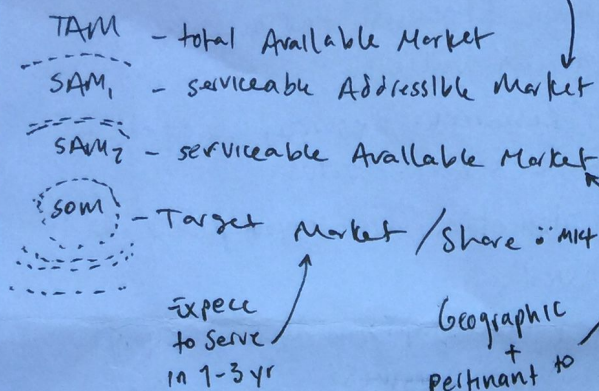 TAM - total Available Market
SAM1 - serviceable Addressible Market
SAM2 - serviceable Available Market
SOM - Target Market / Share
Expect
to serve
in 1-3 yr
Geographic
+
pertinant to